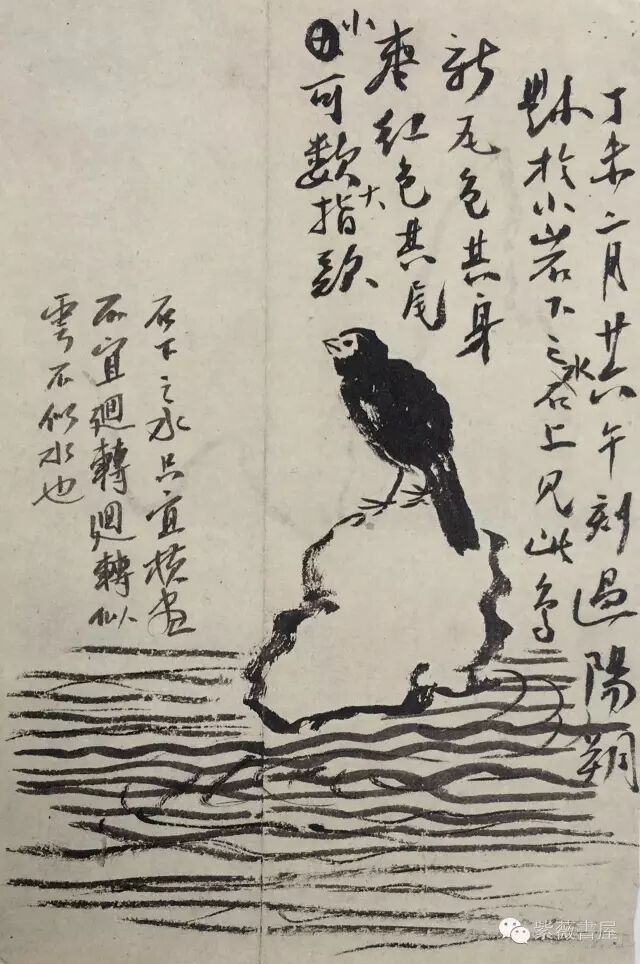 丁未二月廿六午刻過陽朔
縣於小岩下之水石上見此鳥
新瓦色其身
棗紅色其尾
小可數大指
石下之水只宜橫畫
不宜迴轉迴轉似
雲不似水也
紫薇書屋